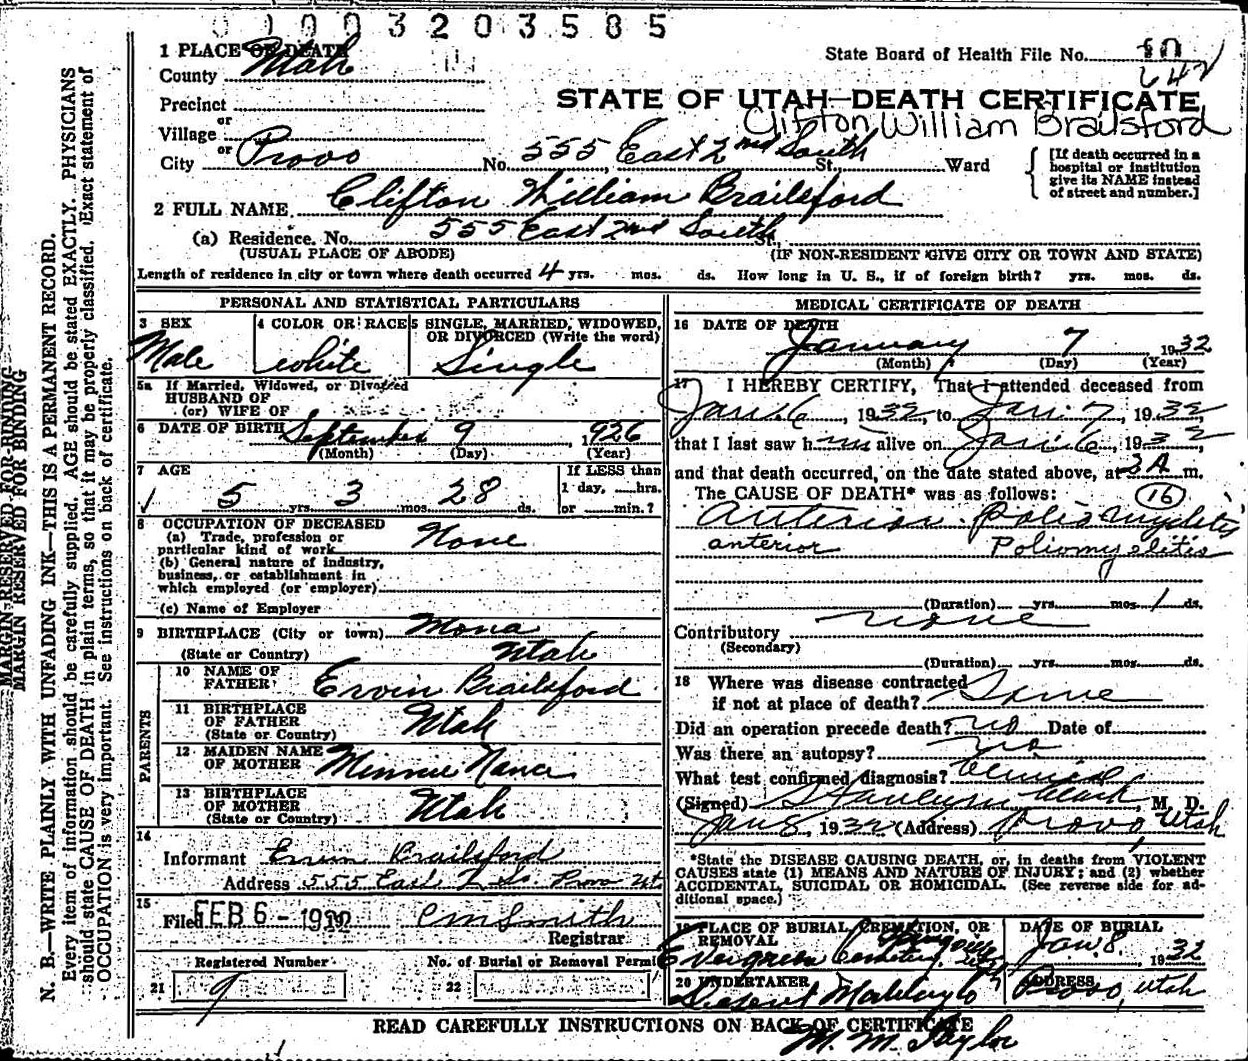 0 1 0 0 3 2 0 3 5 8 5
1 PLACE OF DEATH
State Board of Health File No. 10
County Utah
642
Precinct
STATE OF UTAH—DEATH CERTIFICATE
or
Clifton William Brailsford
Village
or
City Provo No. 555 East 2nd South St., Ward
[If death occurred in a hospital or institution give its NAME instead of street and number.]
2 FULL NAME Clifton William Brailsford
(a) Residence. No. 555 East 2nd South St.,
(USUAL PLACE OF ABODE) (IF NON-RESIDENT GIVE CITY OR TOWN AND STATE)
Length of residence in city or town where death occurred 4 yrs. mos. ds. How long in U. S., if of foreign birth? yrs. mos. ds.
PERSONAL AND STATISTICAL PARTICULARS
3 SEX 4 COLOR OR RACE 5 SINGLE, MARRIED, WIDOWED,
OR DIVORCED (Write the word)
Male white Single
5a If Married, Widowed, or Divorced
HUSBAND OF
(or) WIFE OF
6 DATE OF BIRTH September 9, 1926
(Month) (Day) (Year)
7 AGE If LESS than
5 yrs. 3 mos. 28 ds. 1 day, hrs.
or min.?
8 OCCUPATION OF DECEASED
(a) Trade, profession or
particular kind of work None
(b) General nature of industry,
business, or establishment in
which employed (or employer)
(c) Name of Employer
9 BIRTHPLACE (City or town) Mona
(State or Country) Utah
PARENTS
10 NAME OF
FATHER Ervin Brailsford
11 BIRTHPLACE
OF FATHER Utah
(State or Country)
12 MAIDEN NAME
OF MOTHER Minnie Nance
13 BIRTHPLACE
OF MOTHER Utah
(State or Country)
14
Informant Ervin Brailsford
Address 555 East 2 So. Provo Ut
15
Filed FEB 6 - 19 C M Smith
Registrar
Registered Number No. of Burial or Removal Permit
21 9 22
MEDICAL CERTIFICATE OF DEATH
16 DATE OF DEATH
January 7 1932
(Month) (Day) (Year)
17 I HEREBY CERTIFY, That I attended deceased from
Jan. 6, 1932, to Jan. 7, 1932,
that I last saw him alive on Jan. 6, 1932,
and that death occurred, on the date stated above, at 3 A m.
The CAUSE OF DEATH* was as follows: 16
Anterior Poliomyelitis
anterior Poliomyelitis
(Duration) yrs. mos. 1 ds.
Contributory None
(Secondary)
(Duration) yrs. mos. ds.
18 Where was disease contracted
if not at place of death? Same
Did an operation precede death? no Date of
Was there an autopsy? no
What test confirmed diagnosis? Clinical
(Signed) Clark, M. D.
Jan 8, 1932 (Address) Provo, Utah
*State the DISEASE CAUSING DEATH, or, in deaths from VIOLENT
CAUSES state (1) MEANS AND NATURE OF INJURY; and (2) whether
ACCIDENTAL, SUICIDAL OR HOMICIDAL. (See reverse side for ad-
ditional space.)
19 PLACE OF BURIAL, CREMATION, OR REMOVAL DATE OF BURIAL
Evergreen Cemetery, Jan. 8, 1932
20 UNDERTAKER ADDRESS
Provo, Utah
READ CAREFULLY INSTRUCTIONS ON BACK OF CERTIFICATE
M. M. Taylor
MARGIN RESERVED FOR BINDING
MARGIN RESERVED FOR BINDING
N. B.—WRITE PLAINLY WITH UNFADING INK—THIS IS A PERMANENT RECORD.
Every item of information should be carefully supplied. AGE should be stated EXACTLY. PHYSICIANS
should state CAUSE OF DEATH in plain terms, so that it may be properly classified. Exact statement of
OCCUPATION is very important. See instructions on back of certificate.